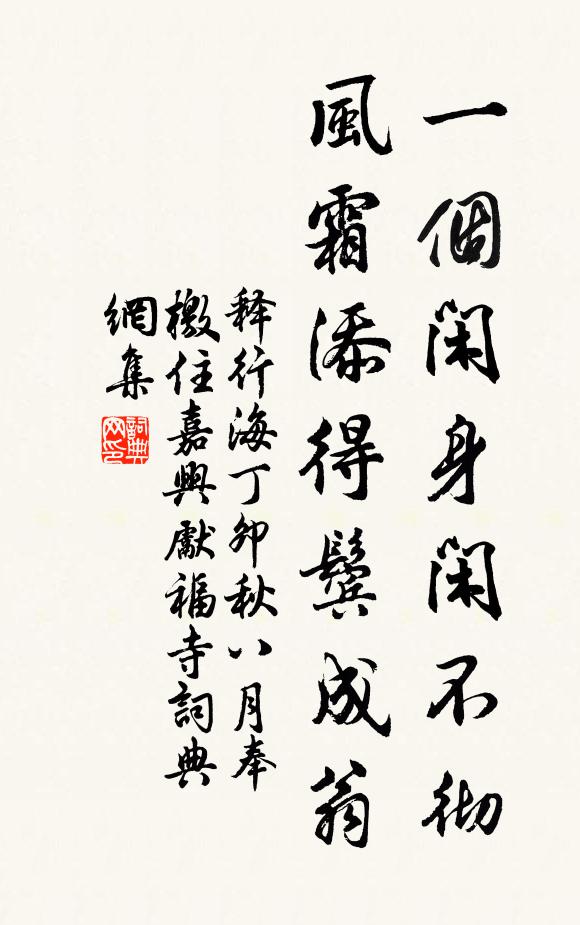 一個閑身閑不彻
風霜添得鬓成翁
释行海丁卯秋八月奉
檄住嘉興獻福寺詞典
網集
詞典
网印